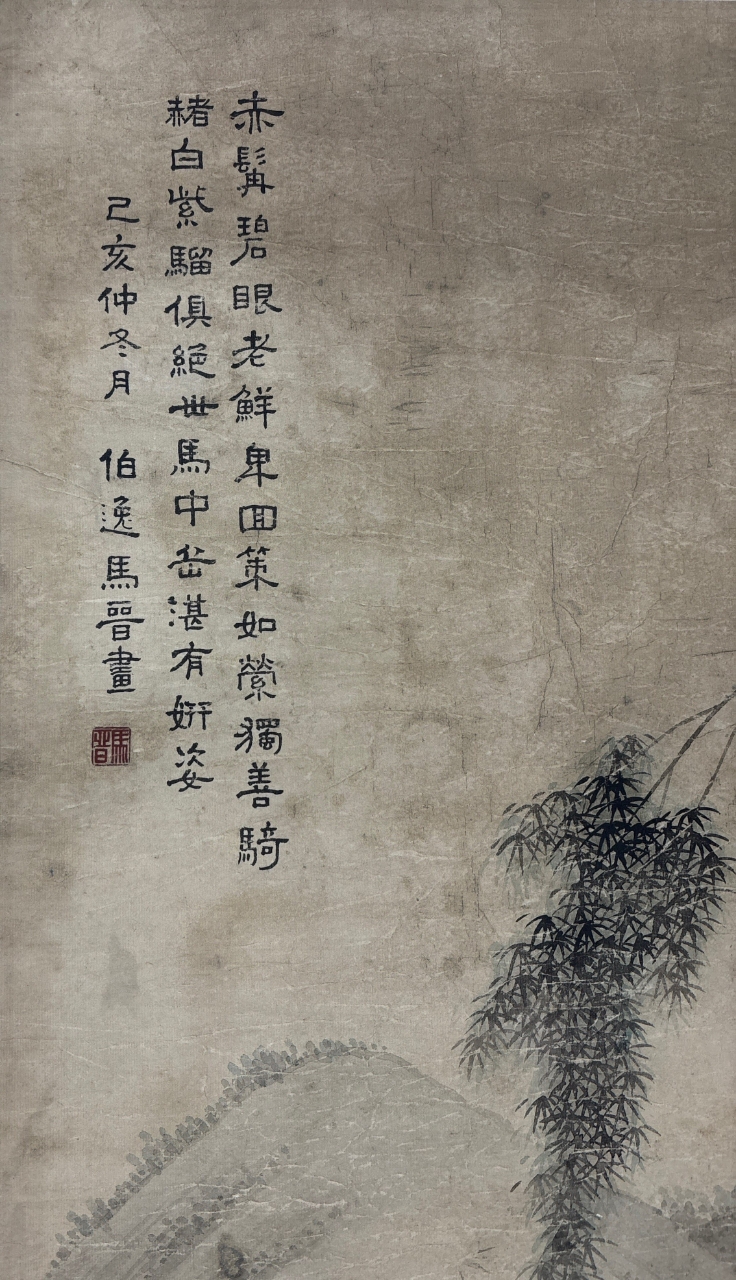 赤髯碧眼老鮮卑回策如縈獨善騎
赭白紫騮俱絕世馬中岳湛有妍姿
己亥仲冬月 伯逸馬晉畫
馬晉